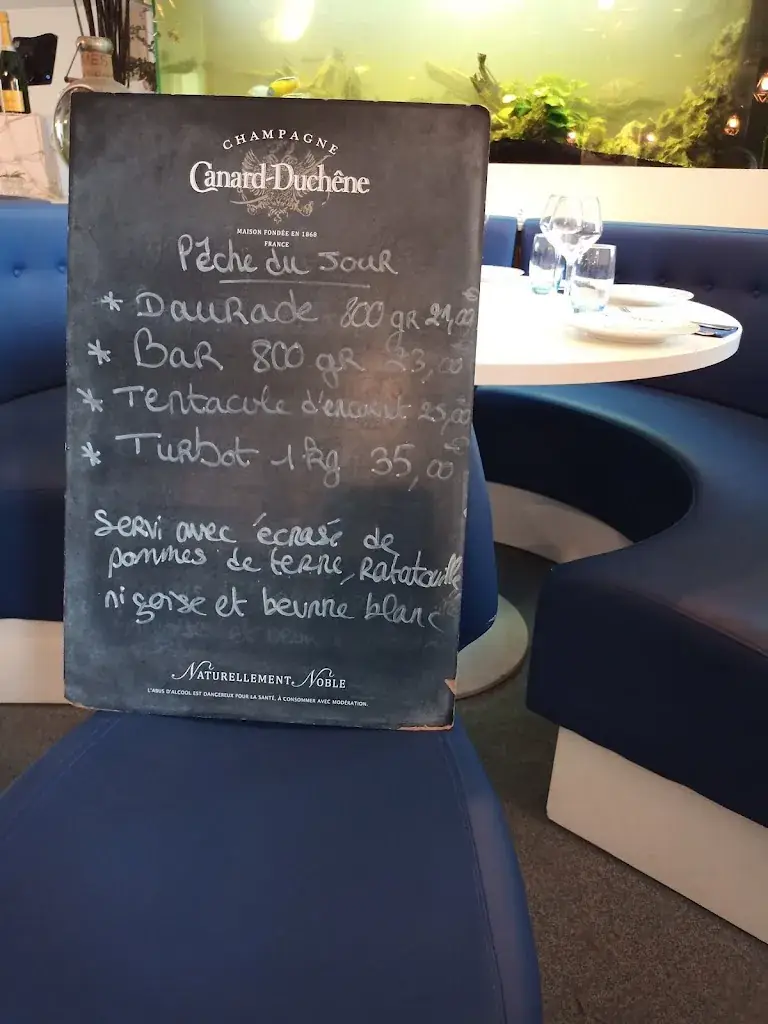 CHAMPAGNE
Canard-Duchêne
MAISON FONDÉE EN 1868
FRANCE
Pêche du Jour
* Daurade 800 gr 21,00 €
* Bar 800 gr 23,00 €
* Tentacule d'encornet 25,00 €
* Turbot 1 kg 35,00 €
Servi avec écrasé de
pommes de terre, Ratatouille
niçoise et beurre blanc
NATURELLEMENT NOBLE
L'ABUS D'ALCOOL EST DANGEREUX POUR LA SANTÉ, À CONSOMMER AVEC MODÉRATION.